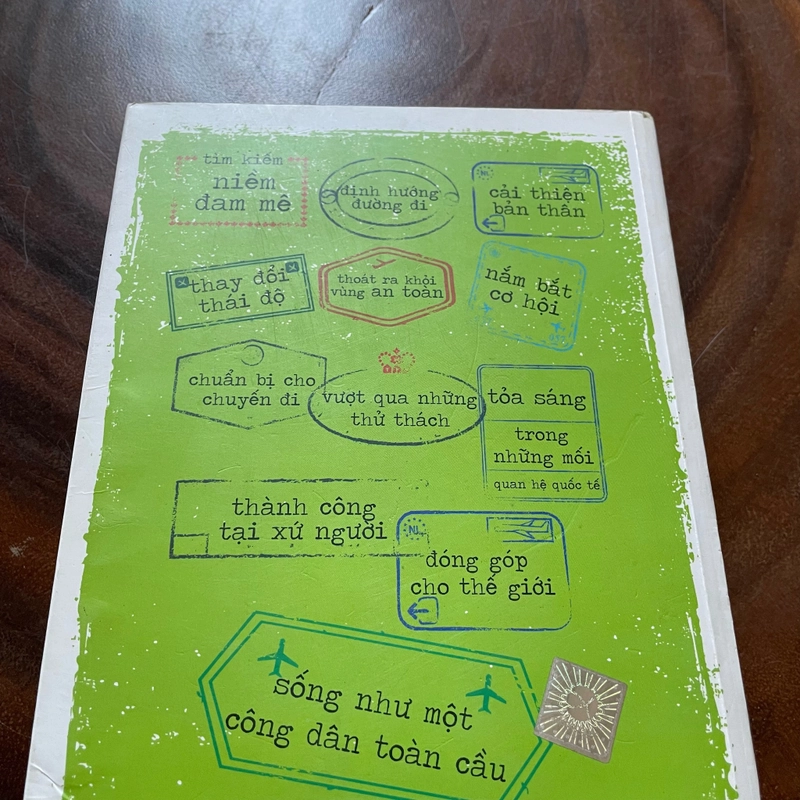 tìm kiếm
niềm
đam mê
định hướng
đường đi
NL
cải thiện
bản thân
thay đổi
thái độ
thoát ra khỏi
vùng an toàn
nắm bắt
cơ hội
chuẩn bị cho
chuyến đi
vượt qua những
thử thách
tỏa sáng
trong
những mối
quan hệ quốc tế
thành công
tại xứ người
NL
đóng góp
cho thế giới
sống như một
công dân toàn cầu